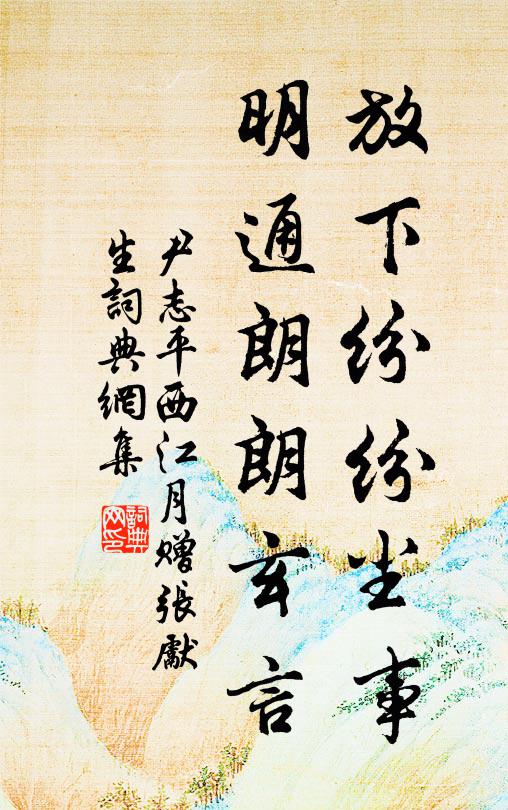 放下紛紛尘事
明通朗朗玄言
尹志平西江月赠張獻
生詞典網集
詞典
网